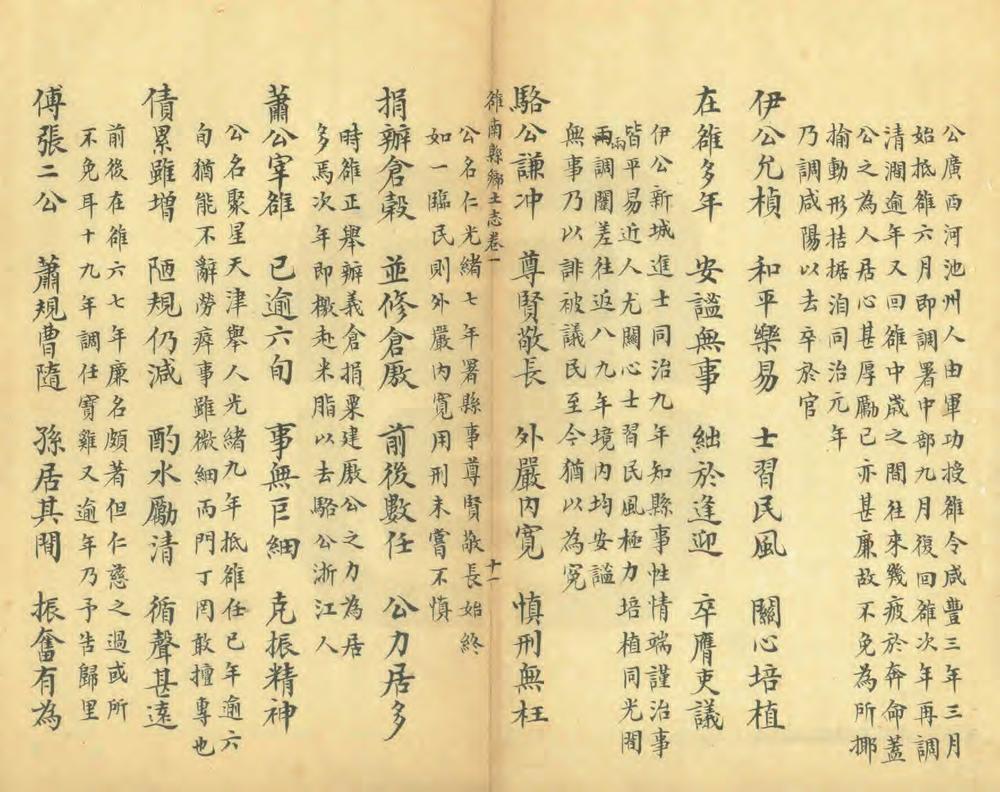 公廣西河池州人由軍功授雒令咸豐三年三月
始抵雒六月即調署中部九月復回雒次年再調
清澗逾年又回雒中歲之間往來幾疲於奔命蓋
公之為人居心甚厚勵已亦甚廉故不免為所揶
揄動形拮据洎同治元年
乃調咸陽以去卒於官
伊公允楨 和平樂易 士習民風 關心培植
在雒多年 安謐無事 絀於逢迎 卒膺吏議
伊公新城進士同治九年知縣事性情端謹治事
皆平易近人尤關心士習民風極力培植同光間
兩調闈差往返八九年境内均安謐
兩
無事乃以誹被議民至今猶以為冤
駱公謙冲 尊賢敬長 外嚴内寬 慎刑無枉
公名仁光緒七年署縣事尊賢敬長始終
如一臨民則外嚴内寬用刑未嘗不慎
雒南縣鄉土志卷一 十一
捐辦倉穀 並修倉廒 前後數任 公力居多
時雒正舉辦義倉捐粟建廒公之力為居
多焉次年即檄赴米脂以去駱公浙江人
蕭公宰雒 已逾六旬 事無巨細 克振精神
公名聚星天津舉人光緒九年抵雒任已年逾六
旬猶能不辭勞瘁事雖微細而門丁罔敢擅專也
債累雖增 陋規仍減 酌水勵清 循聲甚遠
前後在雒六七年廉名頗著但仁慈之過或所
不免耳十九年調任寶雞又逾年乃予告歸里
傅張二公 蕭規曹隨 孫居其間 振奮有為